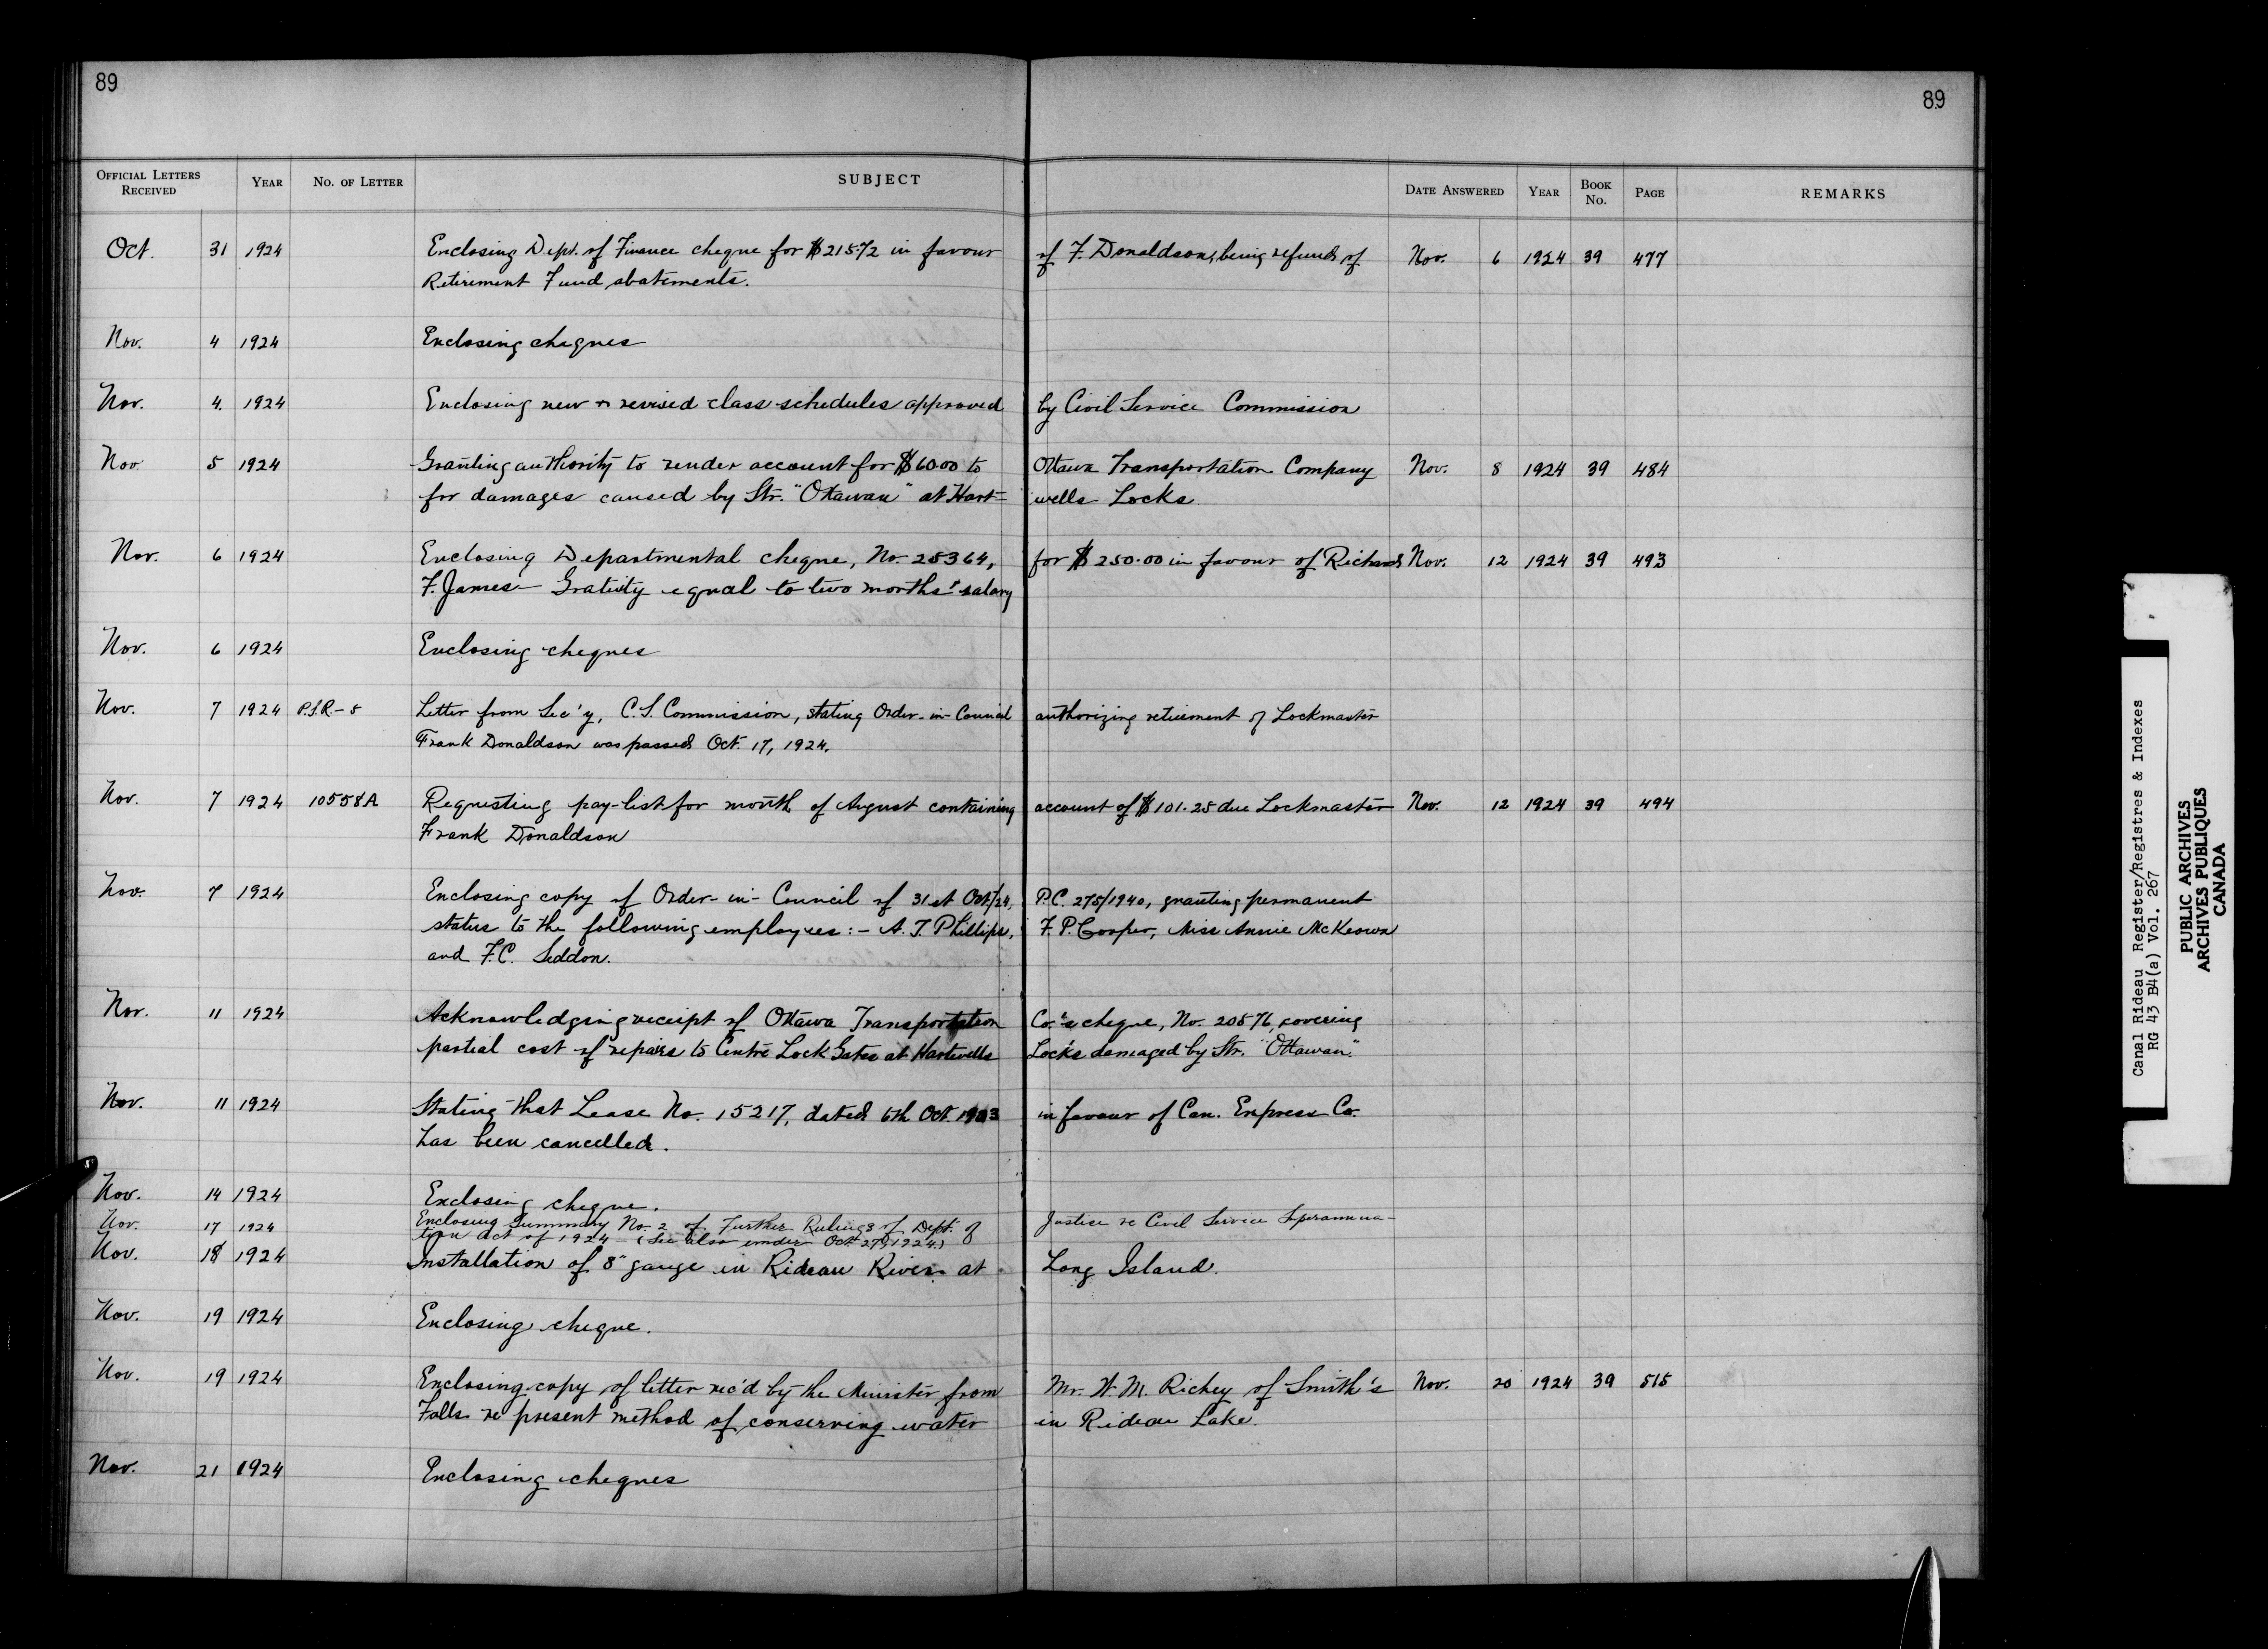 89
89
OFFICIAL LETTERS RECEIVED YEAR NO. OF LETTER SUBJECT DATE ANSWERED YEAR BOOK NO. PAGE REMARKS
Oct. 31 1924 Enclosing Dept. of Finance cheque for $215.72 in favour of F. Donaldson, being refund of Nov. 6 1924 39 477
Retirement Fund abatements.
Nov. 4 1924 Enclosing cheques
Nov. 4. 1924 Enclosing new & revised class schedules approved by Civil Service Commission
Nov. 5 1924 Granting authority to render account for $60.00 to Ottawa Transportation Company Nov. 8 1924 39 484
for damages caused by Str. "Ottawan" at Hart= wells Locks.
Nov. 6 1924 Enclosing Departmental cheque, No. 25364, for $250.00 in favour of Richard Nov. 12 1924 39 493
F. James - Grativity equal to two months' salary
Nov. 6 1924 Enclosing cheques
Nov. 7 1924 P.S.R.-5 Letter from Sec'y, C.S. Commission, stating Order-in-Council authorizing retirement of Lockmaster
Frank Donaldson was passed Oct. 17, 1924.
Nov. 7 1924 10558A Requesting pay-list for month of August containing account of $101.25 due Lockmaster Nov. 12 1924 39 494
Frank Donaldson
Nov. 7 1924 Enclosing copy of Order-in-Council of 31st Oct/24, P.C. 275/1940, granting permanent
status to the following employees:- A.T. Phillips, F.P. Cooper, Miss Annie McKeown
and F.C. Seddon.
Nov. 11 1924 Acknowledging receipt of Ottawa Transportation Co.'s cheque, No. 20576, covering
partial cost of repairs to Centre Lock Gates at Hartwells Locks damaged by Str. "Ottawan."
Nov. 11 1924 Stating that Lease No. 15217, dated 6th Oct. 1903 in favour of Can. Express Co.
has been cancelled.
Nov. 14 1924 Enclosing cheque.
Nov. 17 1924 Enclosing Summary No. 2 of Further Rulings of Dept. of Justice re Civil Service Superannua-
tion Act of 1924 - (See also under Oct. 27, 1924.)
Nov. 18 1924 Installation of 8" gauge in Rideau River at Long Island.
Nov. 19 1924 Enclosing cheque.
Nov. 19 1924 Enclosing copy of letter rec'd by the Minister from Mr. H.M. Richey of Smith's Nov. 20 1924 39 515
Falls re present method of conserving water in Rideau Lake.
Nov. 21 1924 Enclosing cheques
Canal Rideau Register/Registres & Indexes
RG 43 B4(a) Vol. 267
PUBLIC ARCHIVES
ARCHIVES PUBLIQUES
CANADA